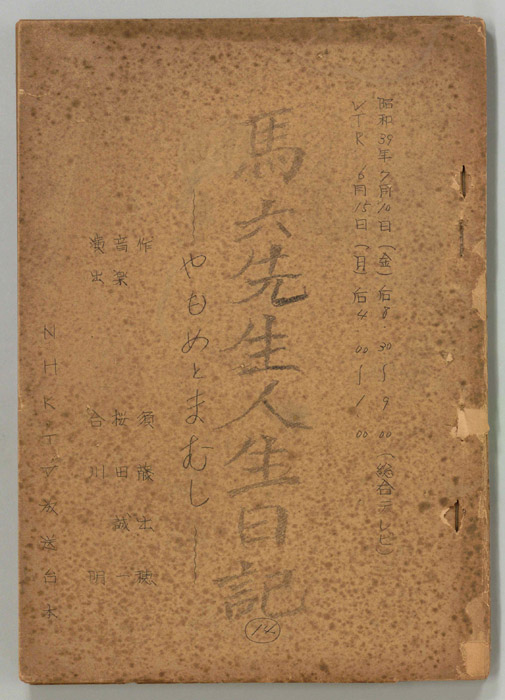 昭和39年7月10日(金)后8 30〜9 00(総合テレビ)
VTR 6月15日(月)后4 00〜1 00
馬六先生人生日記
14
――やもめとまむし――
作 須藤出穂
音楽 桜田誠一
演出 合川明
NHKTV放送台本